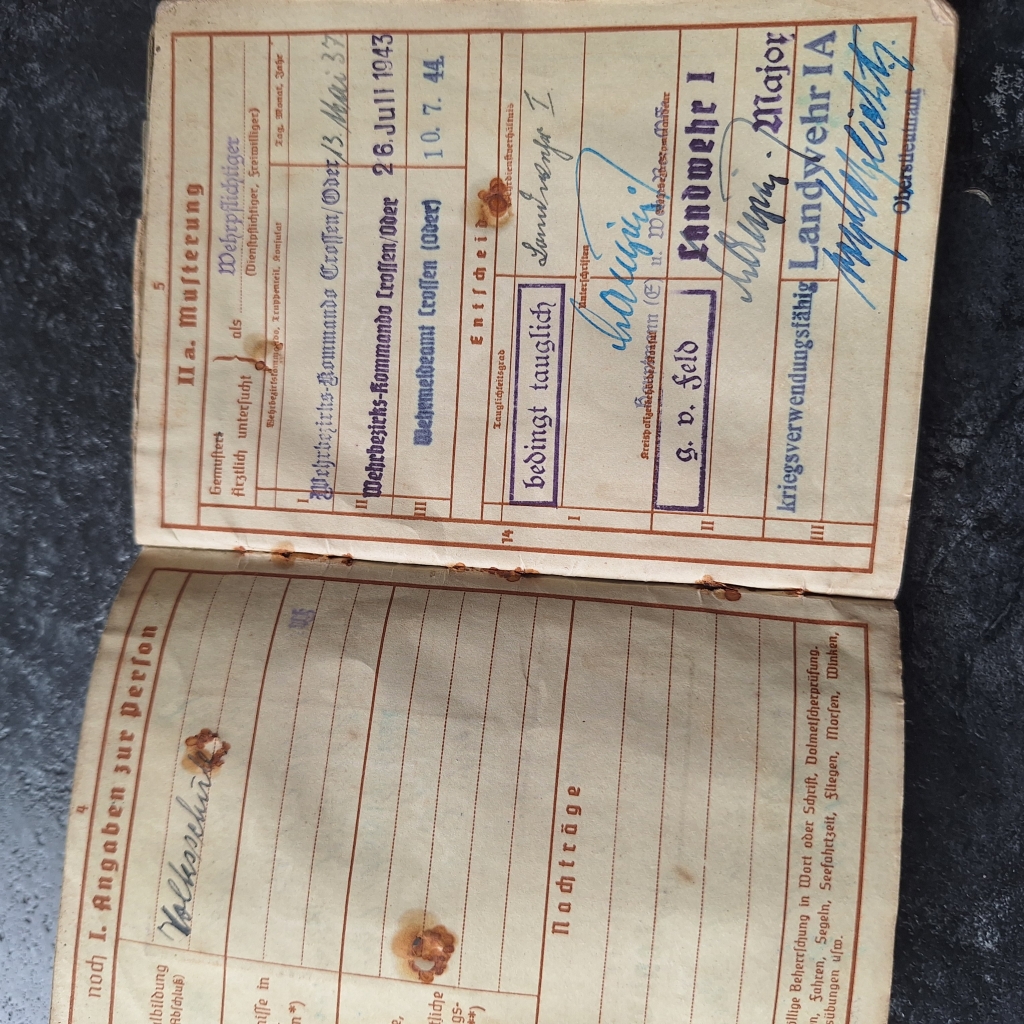 4
noch I. Angaben zur Person
lbildung
Abschluß)
Volksschule
nisse in
n*)
tliche
gs-
**)
Nachträge
öllige Beherrschung in Wort oder Schrift, Dolmetscherprüfung.
n, Fahren, Segeln, Seefahrtzeit, Fliegen, Morsen, Winken,
sübungen usw.
5
II a. Musterung
Gemustert
Ärztlich untersucht } als Wehrpflichtiger
(Dienstpflichtiger, Freiwilliger)
Wehrbezirkskommando, Truppenteil, Konsulat
Tag, Monat, Jahr
I Wehrbezirks-Kommando Crossen/Oder 13. Mai 37
II Wehrbezirks-Kommando Crossen/Oder 26. Juli 1943
III Wehrmeldeamt Crossen (Oder) 10. 7. 44
14
Entscheid
Tauglichkeitsgrad
Wehrdienstverhältnis
I bedingt tauglich
Landwehr I
Unterschriften
Hauptmann (E) u.
II g. v. Feld
Landwehr I
Major
III kriegsverwendungsfähig
Landwehr I A
Oberstleutnant